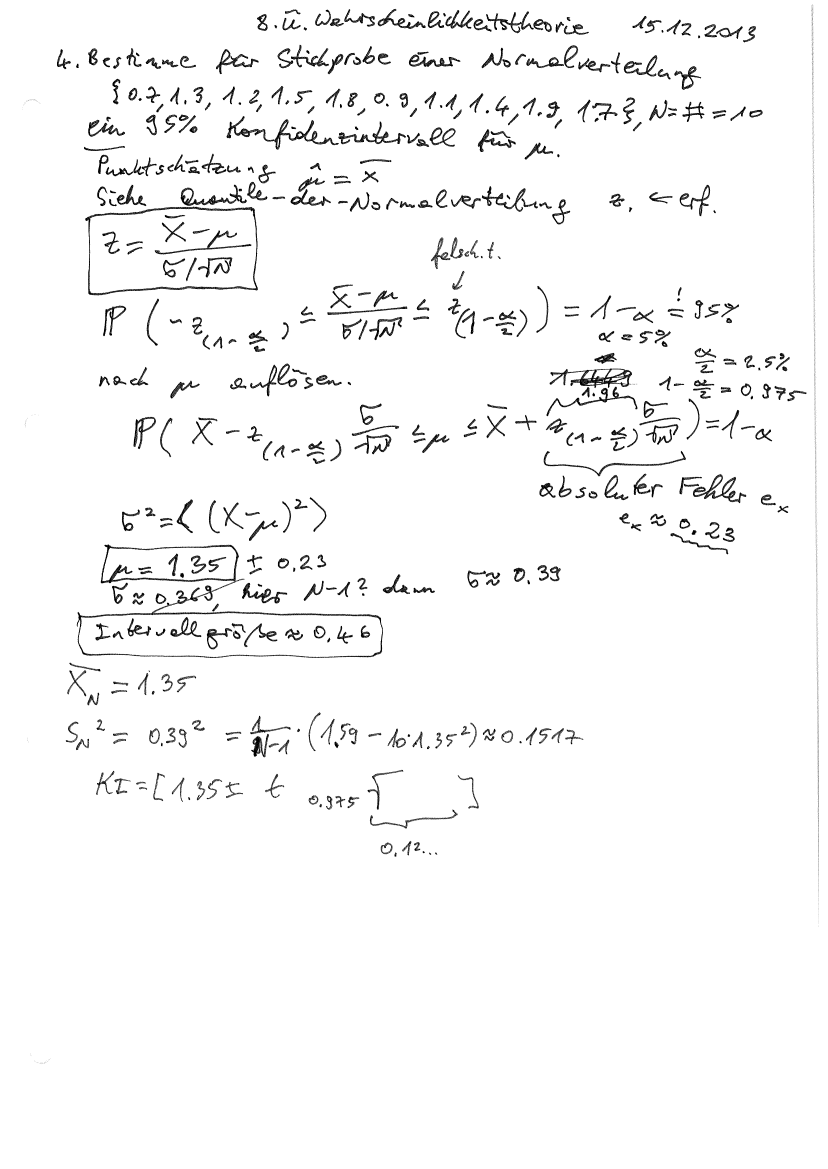 8. Ü. Wahrscheinlichkeitstheorie 15.12.2013
4. Bestimme für Stichprobe einer Normalverteilung
{0.7, 1.3, 1.2, 1.5, 1.8, 0.9, 1.1, 1.4, 1.9, 1.7}, N = # = 10
ein 95% Konfidenzintervall für μ.
Punktschätzung μ̂ = x̄
Siehe Quantile-der-Normalverteilung z, ← erf.
z = (X̄ - μ) / (σ/√N)
falsch. t.
↓
ℙ ( -z_(1-α/2) ≤ (X̄ - μ)/(σ/√N) ≤ z_(1-α/2) ) = 1 - α =! 95%
α = 5%
α/2 = 2.5%
nach μ auflösen.
1 - α/2 = 0.975
1.96
ℙ ( X̄ - z_(1-α/2) σ/√N ≤ μ ≤ X̄ + z_(1-α/2) σ/√N ) = 1 - α
absoluter Fehler e_x
e_x ≈ 0.23
σ² = ⟨(X-μ)²⟩
μ = 1.35 ± 0,23
σ ≈ 0.369, hier N-1? dann σ ≈ 0.39
Intervallgröße ≈ 0.46
X̄_N = 1.35
S_N² = 0.39² = 1/(N-1) · (1.59 - 10·1.35²) ≈ 0.1517
KI = [1.35 ± t 0.975 √ ]
0.12...